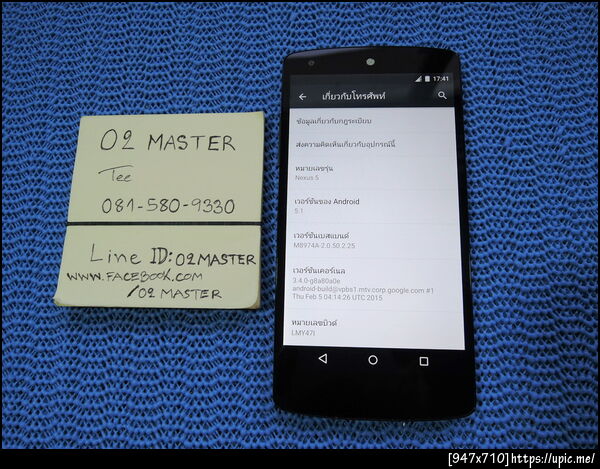 02 MASTER
Tee
081-580-9330
Line ID: 02MASTER
WWW.FACEBOOK.COM
/02 MASTER
17:41
เกี่ยวกับโทรศัพท์
ข้อมูลเกี่ยวกับกฎระเบียบ
ส่งความคิดเห็นเกี่ยวกับอุปกรณ์นี้
หมายเลขรุ่น
Nexus 5
เวอร์ชันของ Android
5.1
เวอร์ชันเบสแบนด์
M8974A-2.0.50.2.25
เวอร์ชันเคอร์เนล
3.4.0-g8a80a0e
android-build@vpbs1.mtv.corp.google.com #1
Thu Feb 5 04:14:26 UTC 2015
หมายเลขบิวด์
LMY47I
[947x710]https://upic.me/